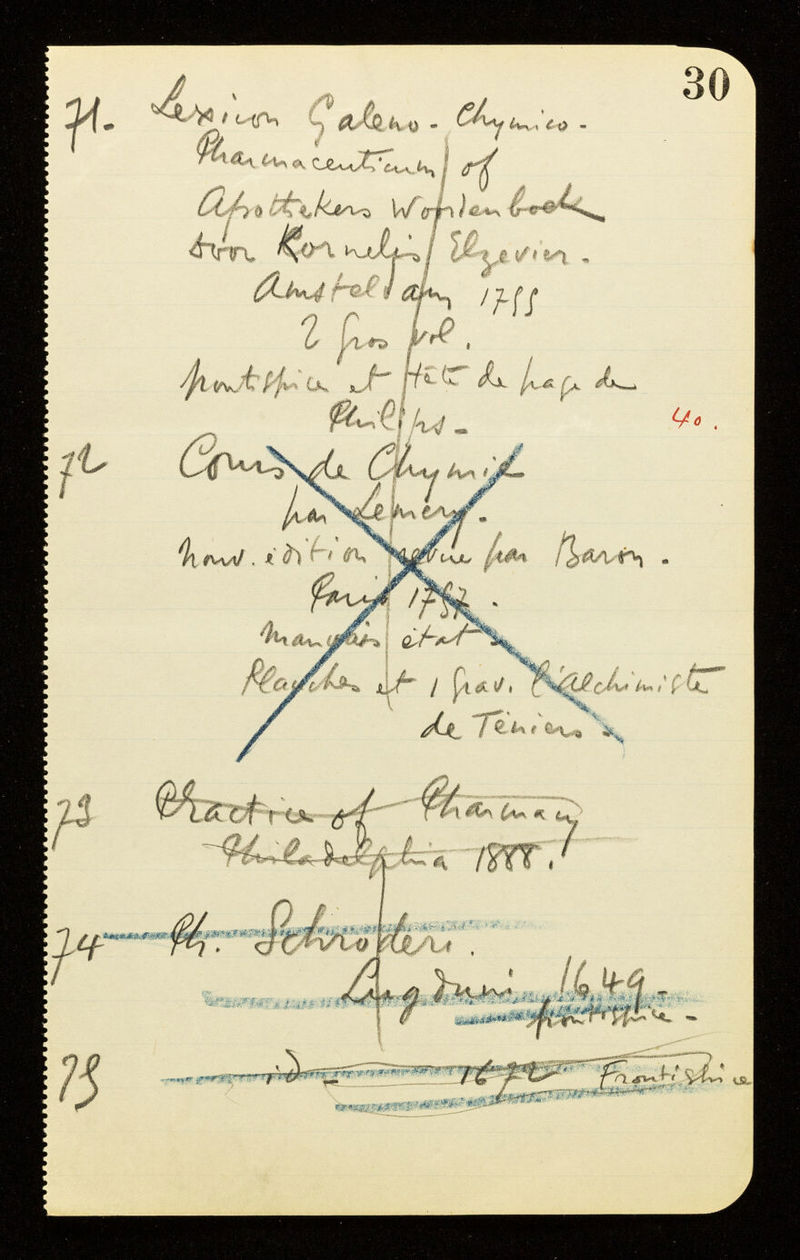 30
71. Lexicon Galeno-Chymico-
Pharmaceuticum of
Apothekers Woordenboek
door Kornelis Elzevier.
Amsteldam 1755
2 gros vol.
frontispice et tête de page de
Philips -
40.
72 Cours de Chymie
par Lemery.
nouv. édition revue par Baron.
Paris 1757.
mauvais état -
Planches et 1 grav. l'Alchimiste
de Téniers.
73 Practice of Pharmacy
Philadelphia 1888.
74 Ph. Schroderi.
Lugduni 1649 -
frontispice -
75 id - 1672 Frontispice